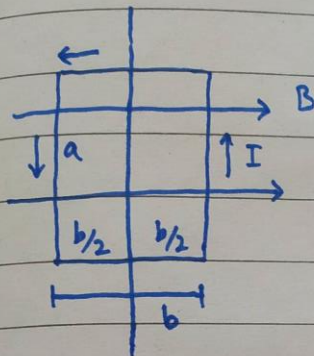 B
a
I
b/2 b/2
b